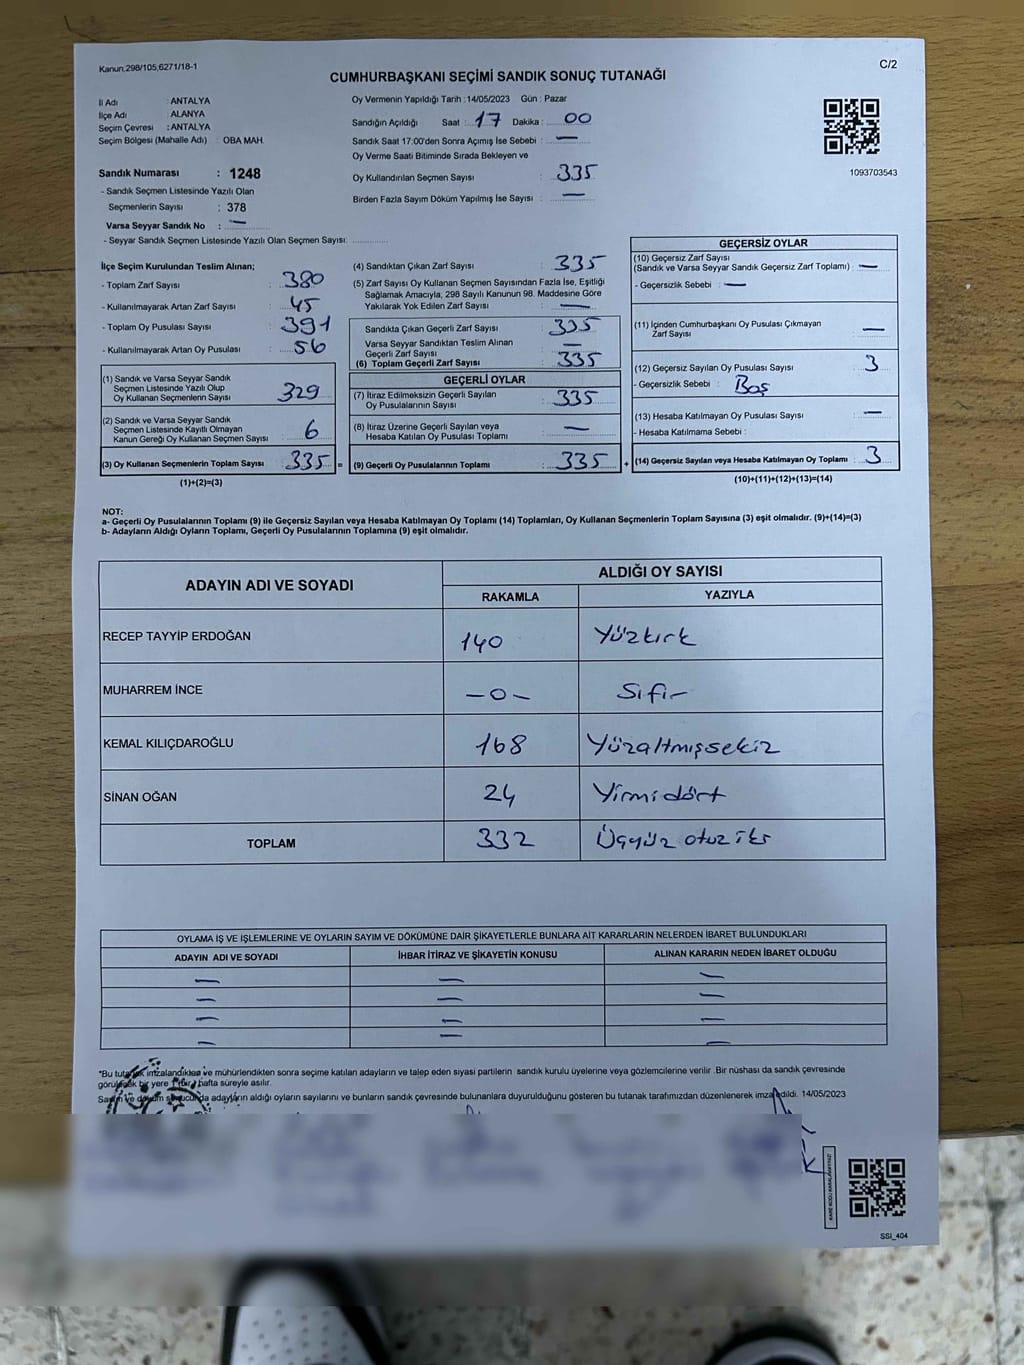 Kanun,298/105,6271/18-1
C/2
CUMHURBAŞKANI SEÇİMİ SANDIK SONUÇ TUTANAĞI
İl Adı : ANTALYA
İlçe Adı : ALANYA
Seçim Çevresi : ANTALYA
Seçim Bölgesi (Mahalle Adı) : OBA MAH.
Sandık Numarası : 1248
- Sandık Seçmen Listesinde Yazılı Olan
Seçmenlerin Sayısı : 378
Varsa Seyyar Sandık No : —
- Seyyar Sandık Seçmen Listesinde Yazılı Olan Seçmen Sayısı:
Oy Vermenin Yapıldığı Tarih :14/05/2023 Gün : Pazar
Sandığın Açıldığı Saat : 17 Dakika : 00
Sandık Saat 17:00'den Sonra Açımış İse Sebebi : —
Oy Verme Saati Bitiminde Sırada Bekleyen ve
Oy Kullandırılan Seçmen Sayısı : 335
Birden Fazla Sayım Döküm Yapılmış İse Sayısı : —
1093703543
İlçe Seçim Kurulundan Teslim Alınan;
- Toplam Zarf Sayısı : 380
- Kullanılmayarak Artan Zarf Sayısı : 45
- Toplam Oy Pusulası Sayısı : 391
- Kullanılmayarak Artan Oy Pusulası : 56
(1) Sandık ve Varsa Seyyar Sandık
Seçmen Listesinde Yazılı Olup
Oy Kullanan Seçmenlerin Sayısı 329
(2) Sandık ve Varsa Seyyar Sandık
Seçmen Listesinde Kayıtlı Olmayan
Kanun Gereği Oy Kullanan Seçmen Sayısı 6
(3) Oy Kullanan Seçmenlerin Toplam Sayısı 335 =
(1)+(2)=(3)
(4) Sandıktan Çıkan Zarf Sayısı : 335
(5) Zarf Sayısı Oy Kullanan Seçmen Sayısından Fazla İse, Eşitliği
Sağlamak Amacıyla, 298 Sayılı Kanunun 98. Maddesine Göre
Yakılarak Yok Edilen Zarf Sayısı : —
Sandıkta Çıkan Geçerli Zarf Sayısı : 335
Varsa Seyyar Sandıktan Teslim Alınan
Geçerli Zarf Sayısı : —
(6) Toplam Geçerli Zarf Sayısı : 335
GEÇERLİ OYLAR
(7) İtiraz Edilmeksizin Geçerli Sayılan
Oy Pusulalarının Sayısı : 335
(8) İtiraz Üzerine Geçerli Sayılan veya
Hesaba Katılan Oy Pusulası Toplamı : —
(9) Geçerli Oy Pusulalarının Toplamı : 335 +
GEÇERSİZ OYLAR
(10) Geçersiz Zarf Sayısı
(Sandık ve Varsa Seyyar Sandık Geçersiz Zarf Toplamı) : —
- Geçersizlik Sebebi : —
(11) İçinden Cumhurbaşkanı Oy Pusulası Çıkmayan
Zarf Sayısı : —
(12) Geçersiz Sayılan Oy Pusulası Sayısı : 3
- Geçersizlik Sebebi : Boş
(13) Hesaba Katılmayan Oy Pusulası Sayısı : —
- Hesaba Katılmama Sebebi :
(14) Geçersiz Sayılan veya Hesaba Katılmayan Oy Toplamı : 3
(10)+(11)+(12)+(13)=(14)
NOT:
a- Geçerli Oy Pusulalarının Toplamı (9) ile Geçersiz Sayılan veya Hesaba Katılmayan Oy Toplamı (14) Toplamları, Oy Kullanan Seçmenlerin Toplam Sayısına (3) eşit olmalıdır. (9)+(14)=(3)
b- Adayların Aldığı Oyların Toplamı, Geçerli Oy Pusulalarının Toplamına (9) eşit olmalıdır.
ADAYIN ADI VE SOYADI
ALDIĞI OY SAYISI
RAKAMLA YAZIYLA
RECEP TAYYİP ERDOĞAN 140 Yüzkırk
MUHARREM İNCE —0— Sıfır
KEMAL KILIÇDAROĞLU 168 Yüzaltmışsekiz
SİNAN OĞAN 24 Yirmidört
TOPLAM 332 Üçyüz otuz iki
OYLAMA İŞ VE İŞLEMLERİNE VE OYLARIN SAYIM VE DÖKÜMÜNE DAİR ŞİKAYETLERLE BUNLARA AİT KARARLARIN NELERDEN İBARET BULUNDUKLARI
ADAYIN ADI VE SOYADI İHBAR İTİRAZ VE ŞİKAYETİN KONUSU ALINAN KARARIN NEDEN İBARET OLDUĞU
— — —
— — —
— — —
— — —
*Bu tutanak imzalandıktan ve mühürlendikten sonra seçime katılan adayların ve talep eden siyasi partilerin sandık kurulu üyelerine veya gözlemcilerine verilir .Bir nüshası da sandık çevresinde
görülecek bir yere 1 (bir) hafta süreyle asılır.
Sayım ve döküm sonucunda adayların aldığı oyların sayılarını ve bunların sandık çevresinde bulunanlara duyurulduğunu gösteren bu tutanak tarafımızdan düzenlenerek imza edildi. 14/05/2023
SSİ_404